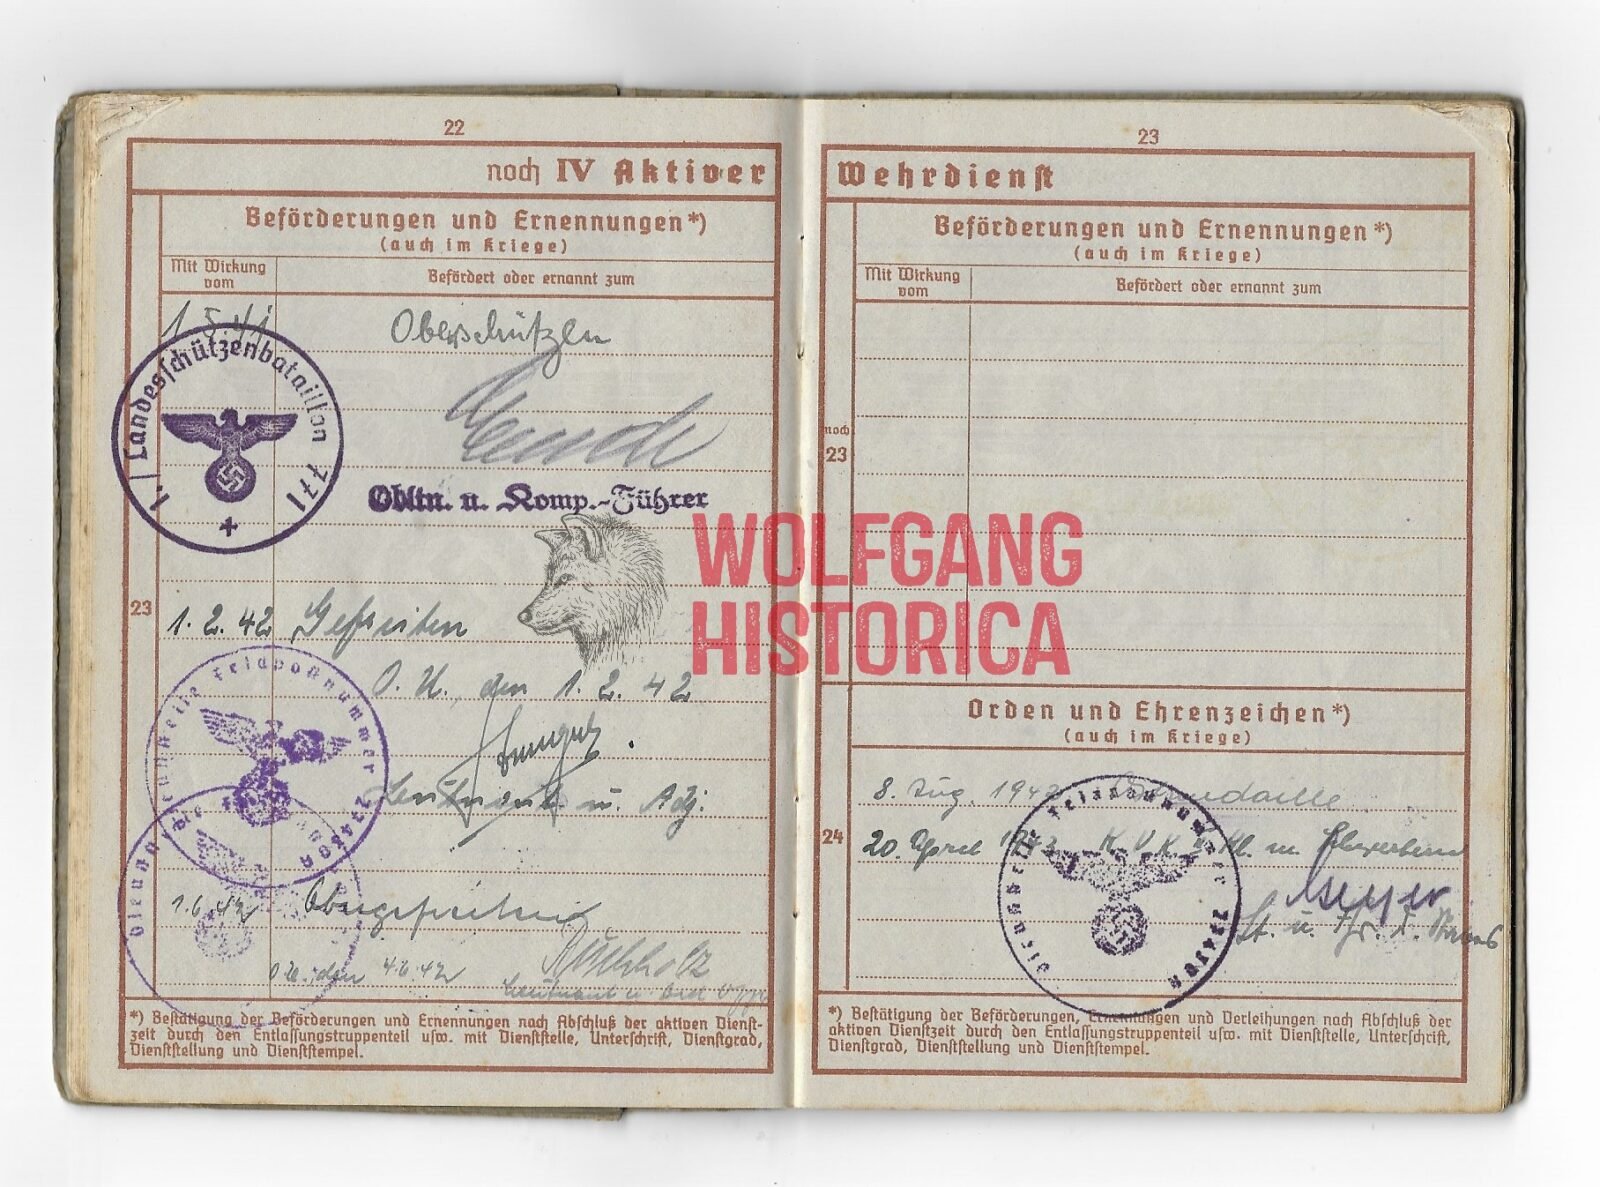 22
noch IV Aktiver
Beförderungen und Ernennungen*)
(auch im Kriege)
Mit Wirkung vom
Befördert oder ernannt zum
1.5.41 Oberschützen
1./Landesschützenbataillon 771
Obltn. u. Komp.-Führer
23
1.2.42 Gefreiten
O. U., den 1.2.42
Leutnant u. Adj.
Dienststelle Feldpostnummer
1.6.42 Obergefreiten
O.U., den 4.6.42
Buchholz
Leutnant u.
*) Bestätigung der Beförderungen und Ernennungen nach Abschluß der aktiven Dienst-
zeit durch den Entlassungstruppenteil usw. mit Dienststelle, Unterschrift, Dienstgrad,
Dienststellung und Dienststempel.
23
Wehrdienst
Beförderungen und Ernennungen*)
(auch im Kriege)
Mit Wirkung vom
Befördert oder ernannt zum
noch
23
Orden und Ehrenzeichen*)
(auch im Kriege)
8. Aug. 1942 Ostmedaille
24
20. April 1943 K.V.K. 2. Kl. m. Schwertern
Meyer
Lt. u.
Dienststelle Feldpostnummer
*) Bestätigung der Beförderungen, Ernennungen und Verleihungen nach Abschluß der
aktiven Dienstzeit durch den Entlassungstruppenteil usw. mit Dienststelle, Unterschrift,
Dienstgrad, Dienststellung und Dienststempel.
WOLFGANG
HISTORICA